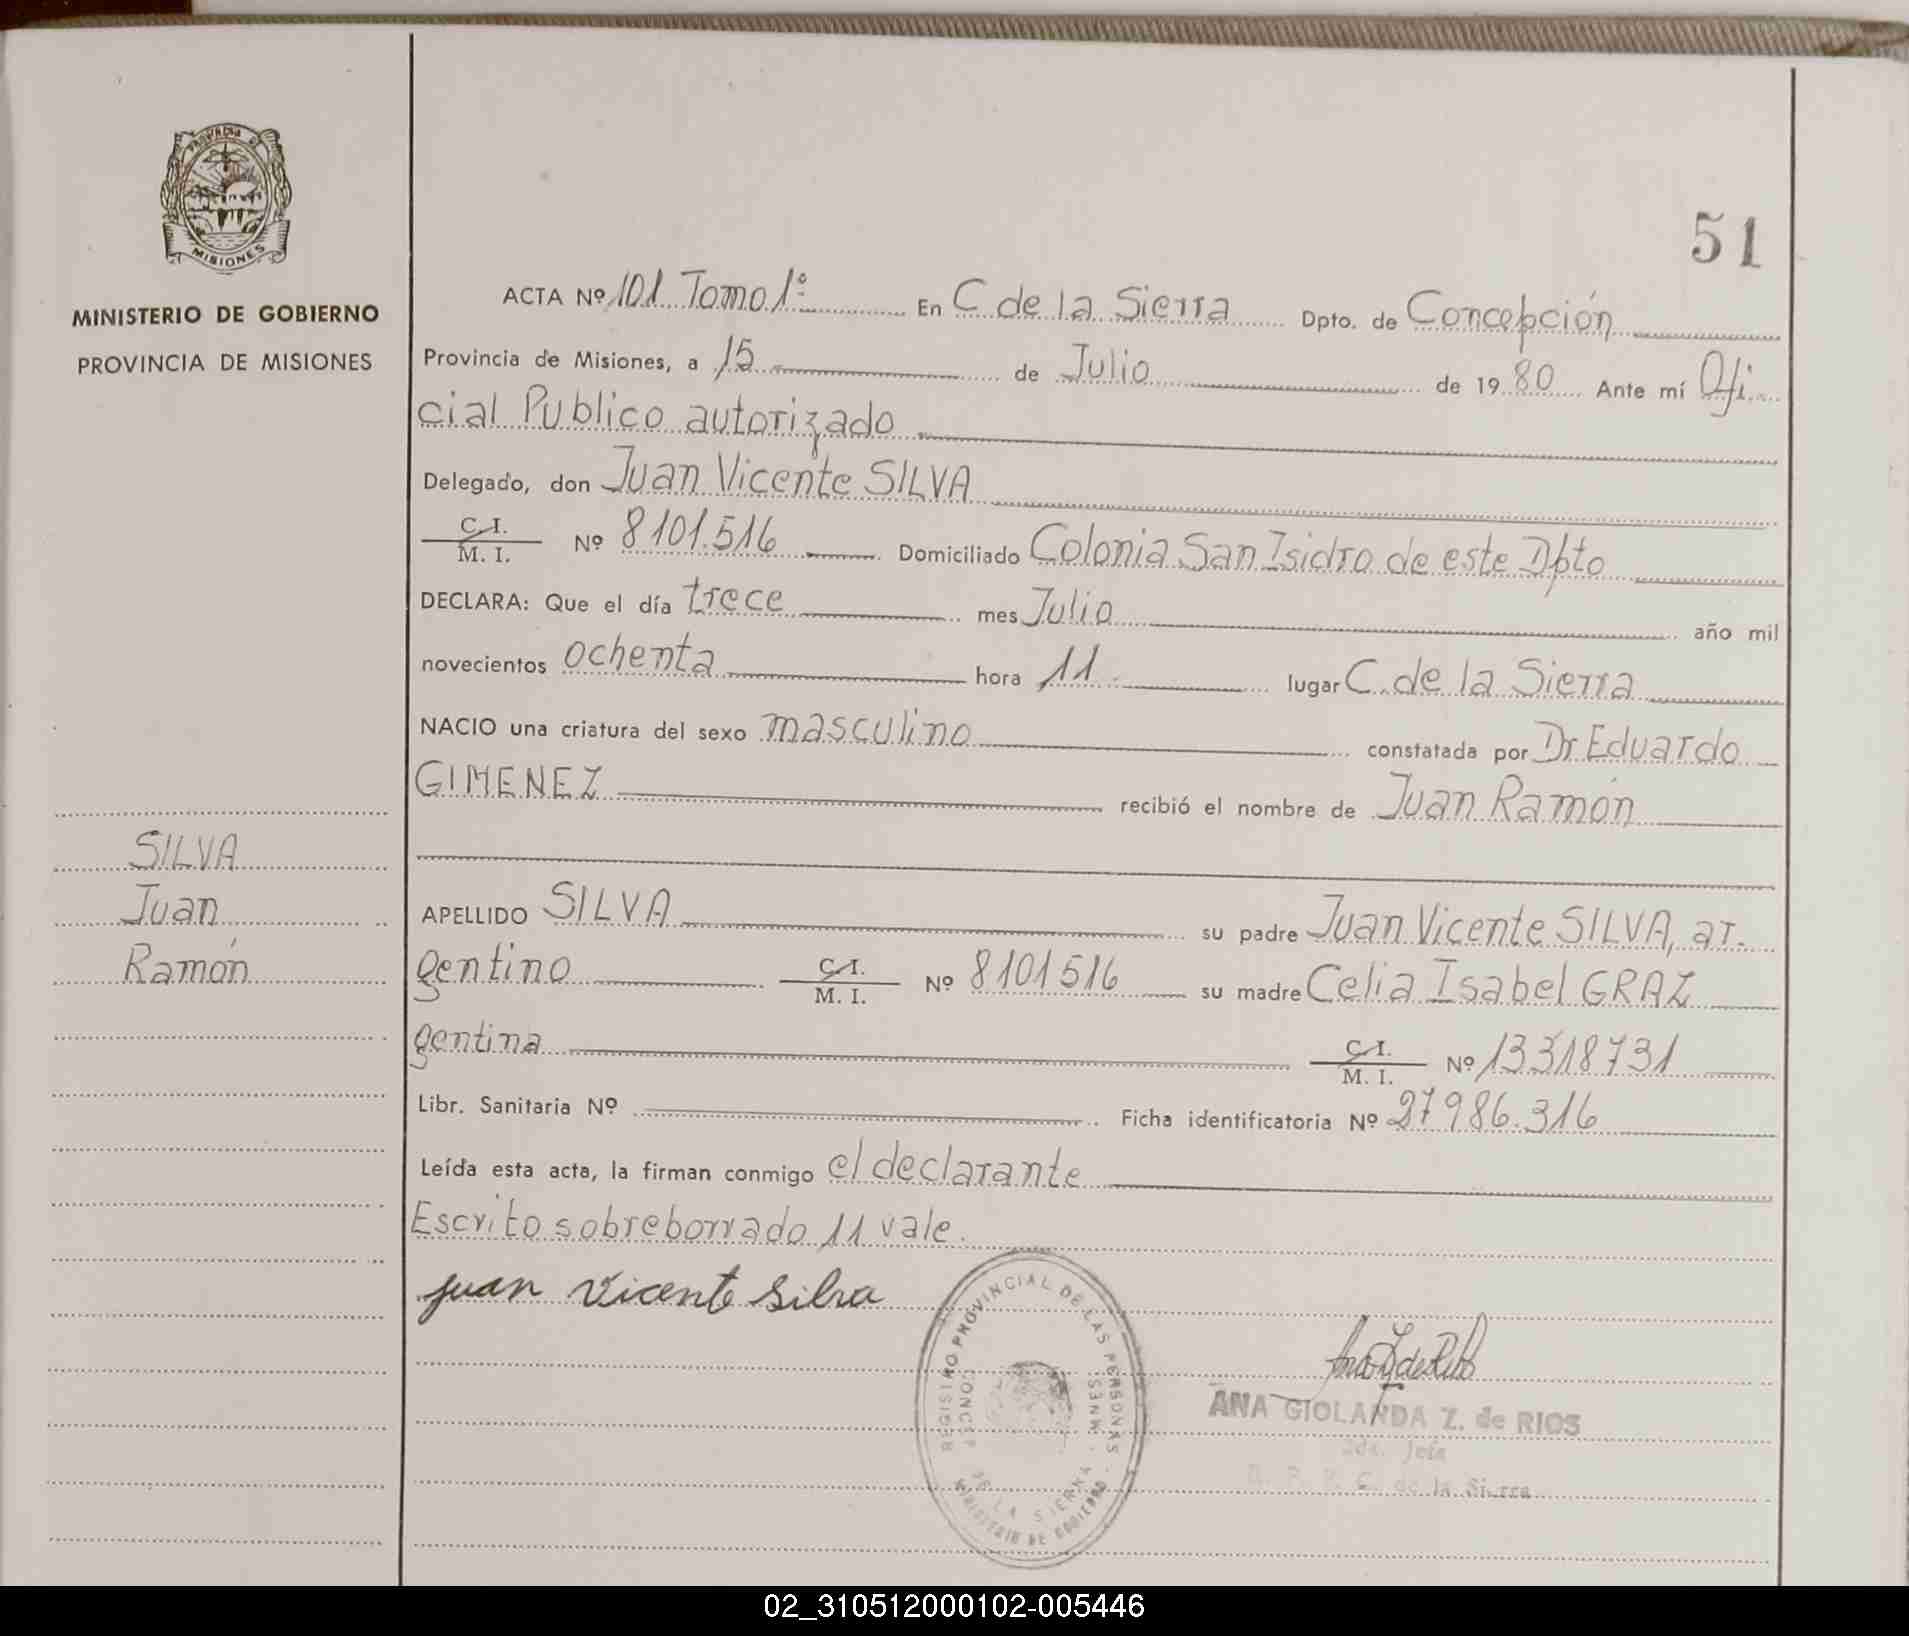 PROVINCIA DE
MISIONES
MINISTERIO DE GOBIERNO
PROVINCIA DE MISIONES
SILVA
Juan
Ramón
51
ACTA Nº 101 Tomo 1º En C de la Sierra Dpto. de Concepción
Provincia de Misiones, a 15 de Julio de 1980 Ante mí Ofi
cial Publico autorizado
Delegado, don Juan Vicente SILVA
C.I. / M. I. Nº 8101.516 Domiciliado Colonia San Isidro de este Dpto
DECLARA: Que el día trece mes Julio año mil
novecientos ochenta hora 11 lugar C. de la Sierra
NACIO una criatura del sexo masculino constatada por Dr Eduardo
GIMENEZ recibió el nombre de Juan Ramón
APELLIDO SILVA su padre Juan Vicente SILVA, ar-
gentino C.I. / M. I. Nº 8101516 su madre Celia Isabel GRAZ
gentina C.I. / M. I. Nº 13318731
Libr. Sanitaria Nº Ficha identificatoria Nº 27986.316
Leída esta acta, la firman conmigo el declarante
Escrito sobreborrado 11 vale.
Juan Vicente Silva
REGISTRO PROVINCIAL DE LAS PERSONAS
CONCEP. DE LA SIERRA - MNES
MINISTERIO DE GOBIERNO
ANA GIOLANDA Z. de RIOS
2da. Jefa
R. P. P. C. de la Sierra
02_310512000102-005446